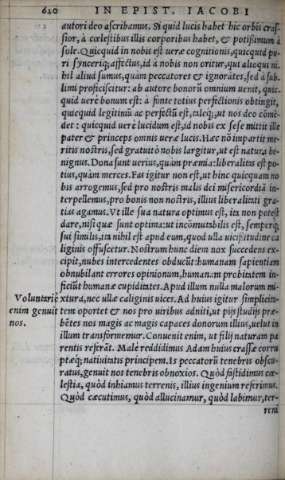 620 IN EPIST. IACOBI
autori deo ascribamus. Si quid lucis habet hic orbis cras-
sior, à cœlestibus illis corporibus habet, & potissimum à
sole. Quicquid in nobis est ueræ cognitionis, quicquid pu-
ri syncerīq; affectus, id à nobis non oritur, qui alioqui ni-
hil aliud sumus, quàm peccatores & ignorātes, sed à sub-
limi proficiscitur: ab autore bonorū omnium uenit, quic-
quid uerè bonum est: à fonte totius perfectionis obtingit,
quicquid legitimū ac perfectū est, calēq;, ut nos deo cōmē-
det: quicquid uerè lucidum est, id nobis ex sese mittit ille
pater & princeps omnis ueræ lucis. Hæc nō impartit me-
ritis nostris, sed gratuitò nobis largitur, ut est natura be-
nignus. Dona sunt uerius, quàm præmia: liberalitas est po-
tius, quàm merces. Fas igitur non est, ut hinc quicquam no
bis arrogemus, sed pro nostris malis dei misericordiā in-
terpellemus, pro bonis non nostris, illius liberalitati gra-
tias agamus. Vt ille sua natura optimus est, ita non potest
dare, nisi quæ sunt optima: ut incōmutabilis est, semperq;
sui similis, ita nihil est apud eum, quod ulla uicissitudine ca
liginis offuscetur. Nostrum hunc diem nox succedens ex-
cipit, nubes intercedentes obducūt: humanam sapientiam
obnubilant errores opinionum, humanam probitatem in-
ficiūt humanæ cupiditates. Apud illum nulla malorum mi-
Voluntariè xtura, nec ulla caliginis uices. Ad huius igitur simplicita-
enim genuit tem oportet & nos pro uiribus adniti, ut pijs studijs præ-
nos. bētes nos magis ac magis capaces donorum illius, uelut in
illum transformemur. Conuenit enim, ut filij naturam pa
rentis referāt. Malè reddidimus Adam huius crassæ corru
ptæq; natiuitatis principem. Is peccatorū tenebris obscu-
ratus, genuit nos tenebris obnoxios. Quòd fastidimus cœ-
lestia, quòd inhiamus terrenis, illius ingenium referimus.
Quòd cæcutimus, quòd allucinamur, quòd labimur, ter-
reni